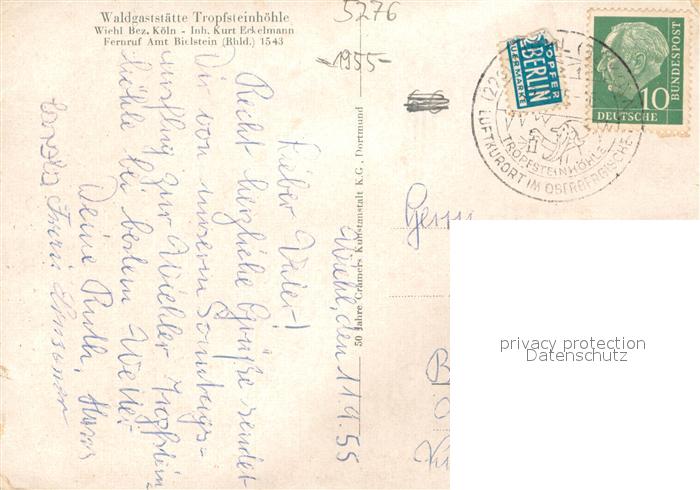 Waldgaststätte Tropfsteinhöhle
Wiehl Bez. Köln - Inh. Kurt Eckelmann
Fernruf Amt Bielstein (Rhld.) 1543
5276
-1955-
Wiehl, den 11.9.55
Lieber Vater!
Recht herzliche Grüße sendet
Dir von unserm Sonntags-
ausflug zur Wiehler Tropfstein
höhle bei bestem Wetter
Deine Ruth, Hans
50 Jahre Cramers Kunstanstalt K.G., Dortmund
NOTOPFER
2 BERLIN
STEUERMARKE
DEUTSCHE
BUNDESPOST
10
(22
TROPFSTEINHÖHLE
LUFTKURORT IM OBERBERGISCHEN
Herrn
privacy protection
Datenschutz